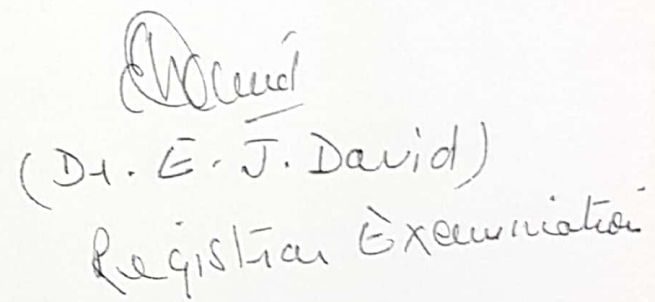 (Dr. E. J. David)
Registrar Examination